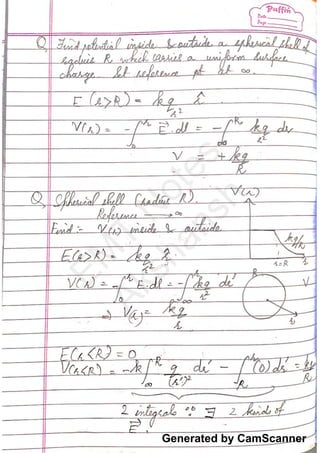 Puffin
Date
Page
Q. Find potential inside & outside a spherical shell of
radius R which carries a uniform surface
charge. Set reference pt at ∞.
E (r>R) = kq/r² r̂
V(r) = -∫₀^r E⃗.dl = -∫^R kq/r² dr
V = +kq/R
Q. Spherical shell (radius R). V(r)
Reference → ∞
Find :- V(r) inside & outside.
kq/r
E(r>R) = kq/r² r̂
r=R r
V(r) = -∫₀^r E.dl = -∫_∞^r kq/r² dr'
R
⇒ V(r) = kq/r
r
E(r<R) = 0
V(r<R) = -k∫_∞^R q/(r')² dr' - ∫_R^r (0)dr' = kq/R
2 integrals ∵ ∃ 2 kinds of
E⃗.
Generated by CamScanner